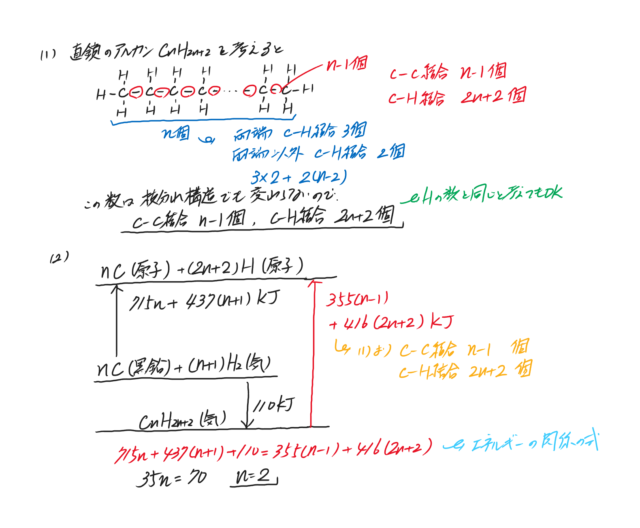 (1) 直鎖のアルカン CnH2n+2 を考えると
H H H H H H
H-C-C-C-C- … -C-C-H
H H H H H H
n-1個
C-C結合 n-1個
C-H結合 2n+2個
n個
両端 C-H結合3個
両端以外 C-H結合2個
3×2+2(n-2)
この数は枝分れ構造でも変わらないので、
C-C結合 n-1個, C-H結合 2n+2個
Hの数と同じと考えてもOK
(2)
nC(原子)+(2n+2)H(原子)
715n+437(n+1)kJ
355(n-1)
+416(2n+2)kJ
(1)より C-C結合 n-1 個
C-H結合 2n+2 個
nC(黒鉛)+(n+1)H2(気)
110kJ
CnH2n+2(気)
715n+437(n+1)+110=355(n-1)+416(2n+2)
エネルギーの関係の式
35n=70 n=2